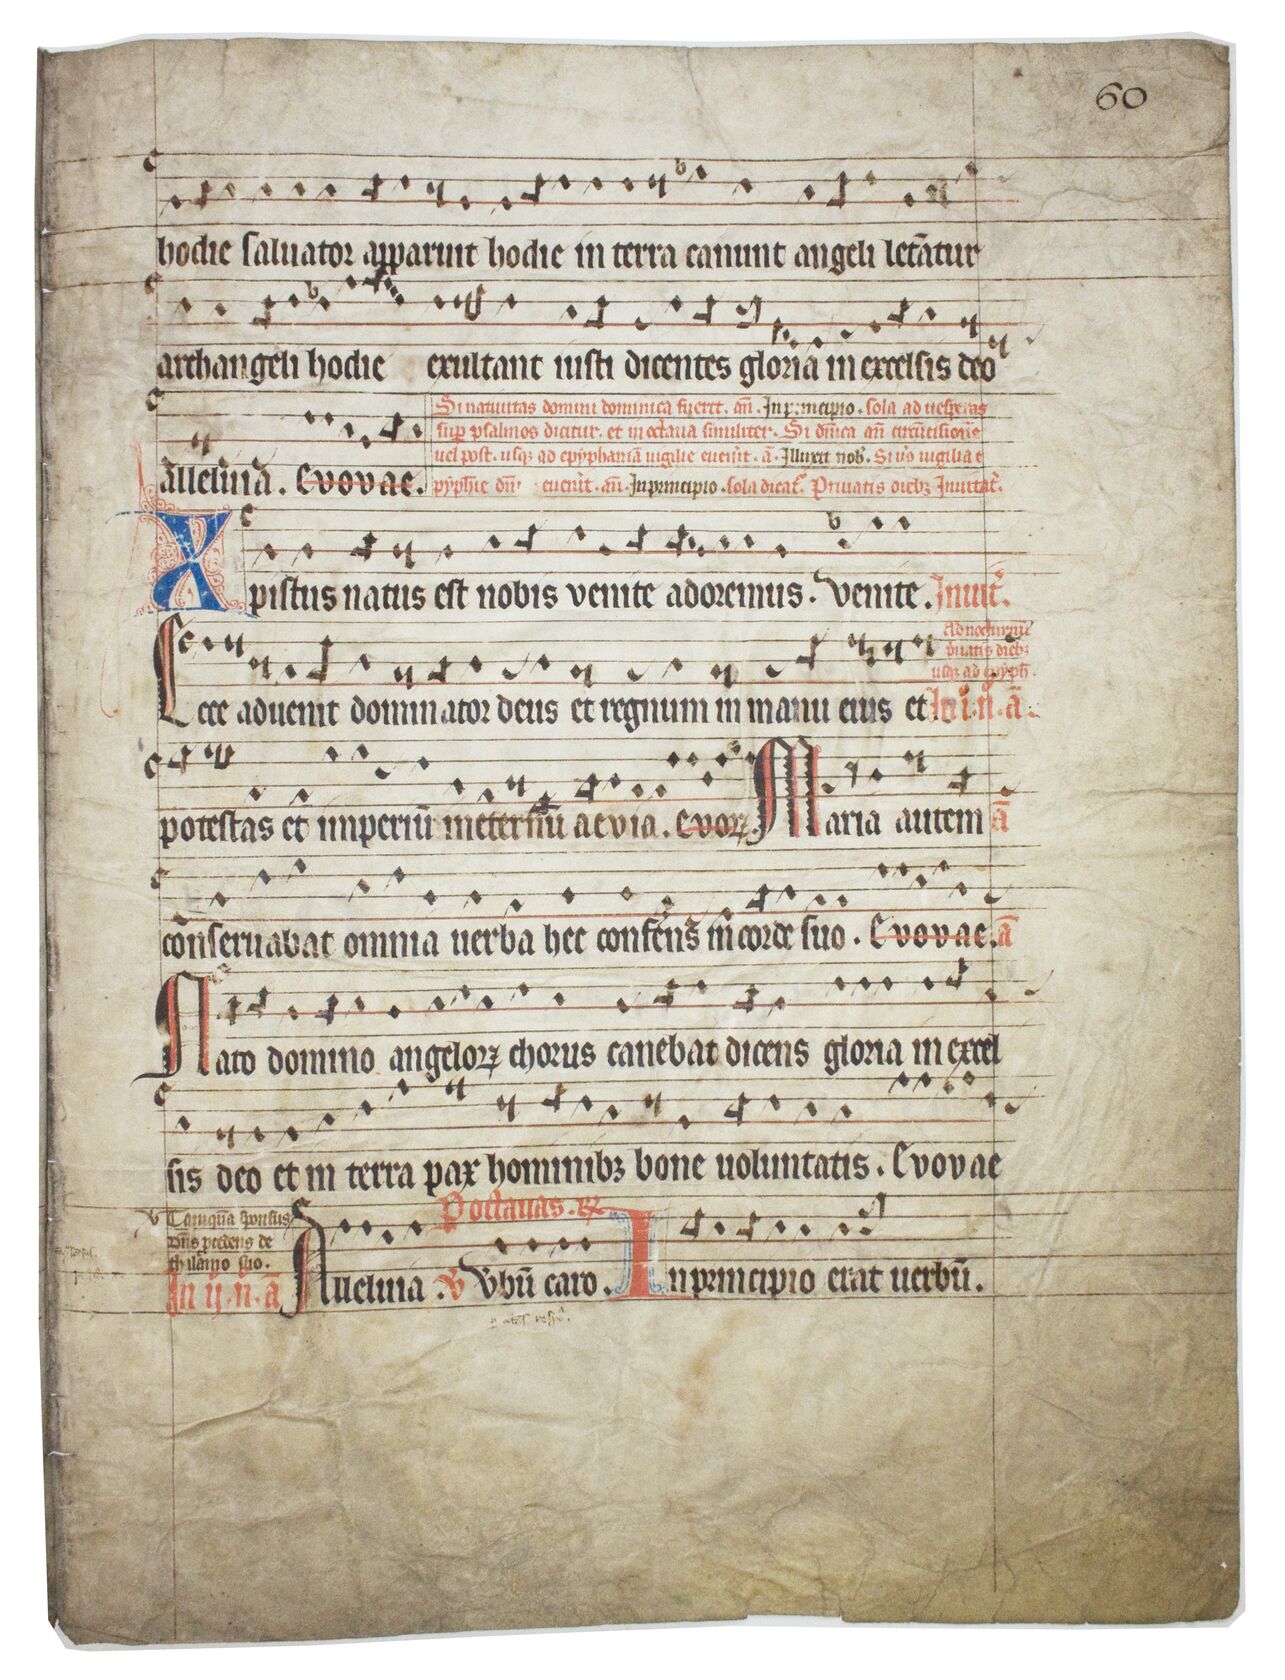 60
hodie saluator apparuit hodie in terra canunt angeli letātur
archangeli hodie exultant iusti dicentes gloria in excelsis deo
alleluia. Evovae.
Si natiuitas domini dominica fuerit. añ. In principio. sola ad uesperas
sup psalmos dicitur. et in octaua similiter. Si dñica añ circūcisionē
uel post. usqꝫ ad epyphaniā uigilie euenit. a. Illuxit nob. Si uo uigilia e
pyphie dñi euenit. añ. In principio. sola dicat. Priuatis diebꝫ Inuitat.
Xpistus natus est nobis venite adoremus. Venite. Inuit.
Ad nocturnū
priuatis diebꝫ
usqꝫ ad epyph.
Ecce aduenit dominator deus et regnum in manu eius et In i. n. a.
potestas et imperiū in eternū aevia. Evoꝝ. Maria autem a
conseruabat omnia uerba hec conferēs in corde suo. Evovae. a
Nato domino angeloꝝ chorus canebat dicens gloria in excel
sis deo et in terra pax hominibꝫ bone uoluntatis. Evovae
P octauas. ꝶ
V Tamquā sponsus
dñs pcedens de
thalamo suo.
In ij. n. a Alleluia. V Vbū caro. In principio erat uerbū.